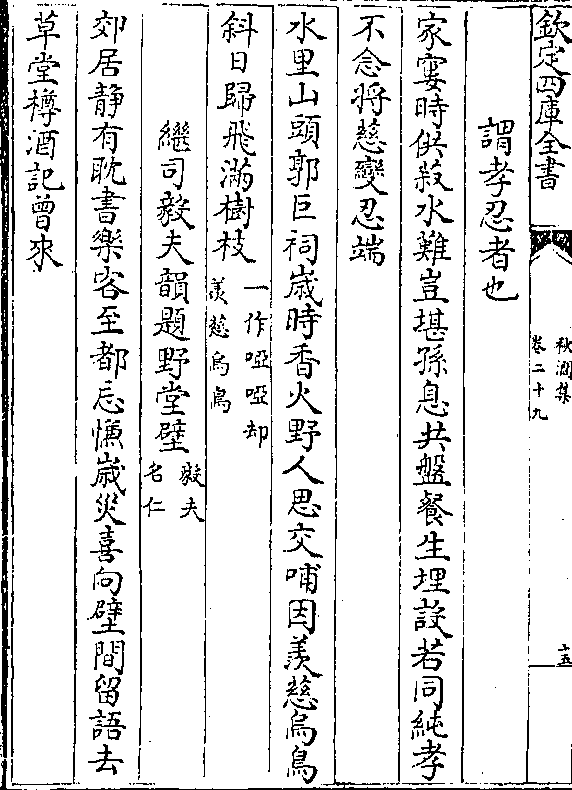 欽定四庫全書
秋澗集
卷二十九
十五
謂孝忍者也
家窶時供菽水難豈堪孫息共盤餐生埋設若同純孝
不念将慈變忍端
水里山頭郭巨祠歳時香火野人思交哺因羨慈烏鳥
斜日歸飛滿樹枝
一作啞啞却
羨慈烏鳥
繼司毅夫韻題野堂壁
毅夫
名仁
郊居静有耽書樂客至都忘慊歳災喜向壁間留語去
草堂樽酒記曾來